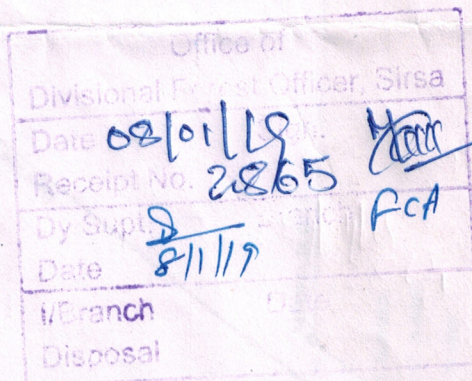 Office of
Divisional Forest Officer, Sirsa
Date 08/01/19
Receipt No. 2865
FCA
Dy Supt. Branch
Date 8/1/19
I/Branch Date
Disposal